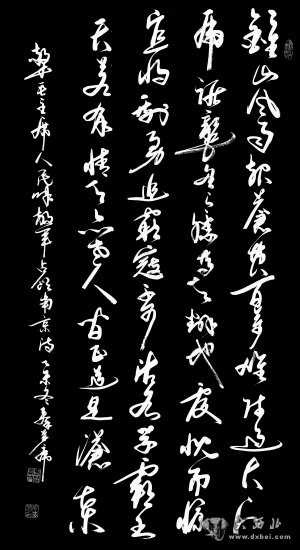 鐘山风雨起蒼黄百万雄师过大江
虎踞龍盤今勝昔天翻地覆慨而慷
宜将剩勇追窮寇不可沽名学霸王
天若有情天亦老人间正道是滄桑
毛主席人民解放军占领南京诗
大西北
www.dxbei.com